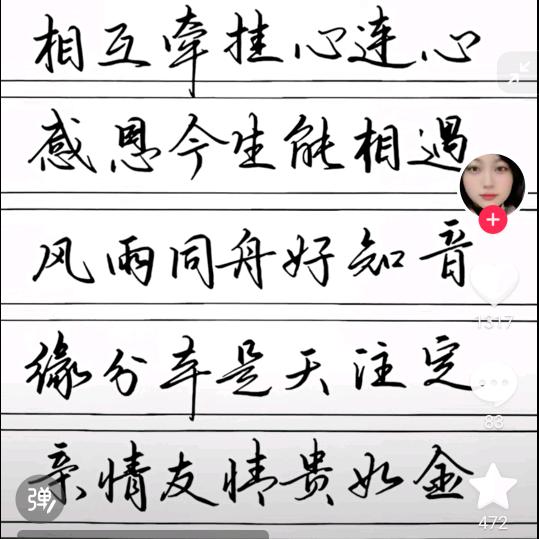 相互牵挂心连心
感恩今生能相遇
风雨同舟好知音
1317
缘分本是天注定
83
亲情友情贵如金
弹
472